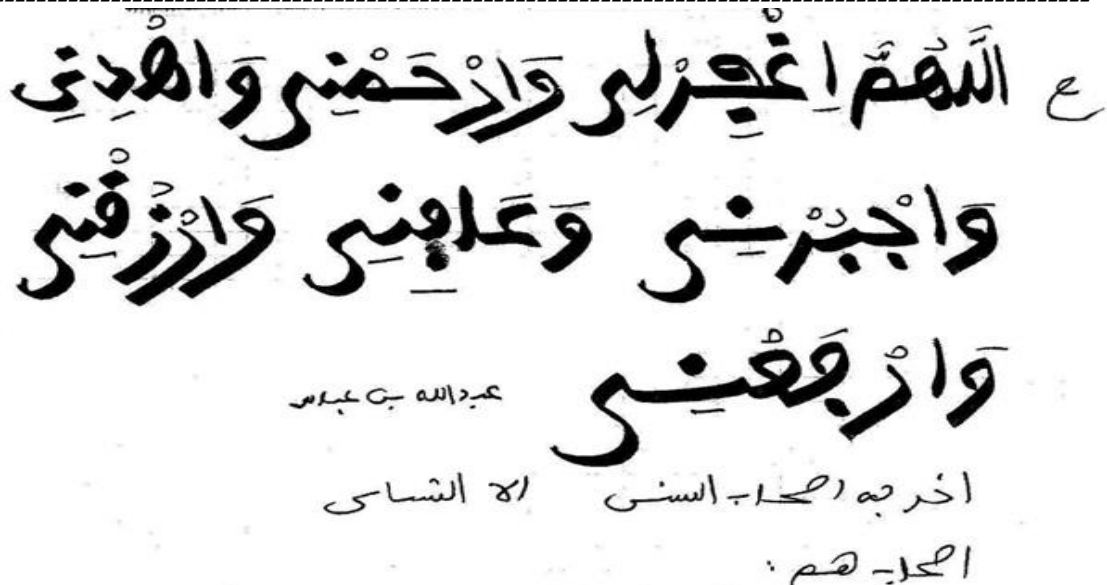 ع اللَّهُمَّ اِغْفِرْلِي وَارْحَمْنِي وَاهْدِنِي
وَاجْبُرْنِي وَعَافِنِي وَارْزُقْنِي
وَارْفَعْنِي
عبدالله بن عباس
اخرجه اصحاب السنن إلا النسائى
اصحاب هم :